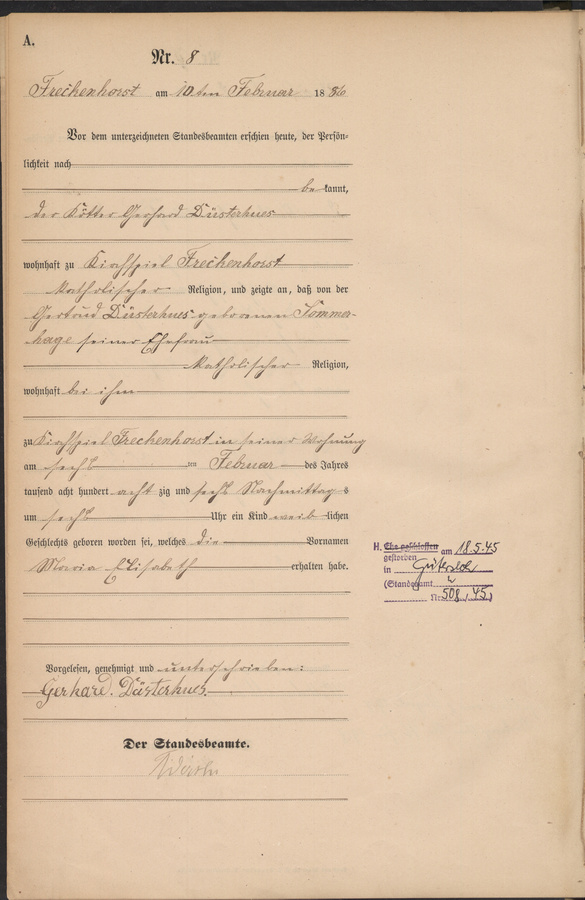 A.
Nr. 8
Freckenhorst am 10ten Februar 1886
Vor dem unterzeichneten Standesbeamten erschien heute, der Persön-
lichkeit nach
bekannt,
der Kötter Gerhard Düsterhues
wohnhaft zu Kirchspiel Freckenhorst
katholischer Religion, und zeigte an, daß von der
Gertrud Düsterhues geborenen Sommer-
hage seiner Ehefrau
katholischer Religion,
wohnhaft bei ihm
zu Kirchspiel Freckenhorst in seiner Wohnung
am sechsten Februar des Jahres
tausend acht hundert achtzig und sechs Nachmittags
um sechs Uhr ein Kind weiblichen
Geschlechts geboren worden sei, welches die Vornamen
Maria Elisabeth erhalten habe.
Vorgelesen, genehmigt und unterschrieben:
Gerhard. Düsterhues.
Der Standesbeamte.
H. Ehe geschlossen am 18.5.45
gestorben
in Gütersloh
(Standesamt "
Nr. 508/45)